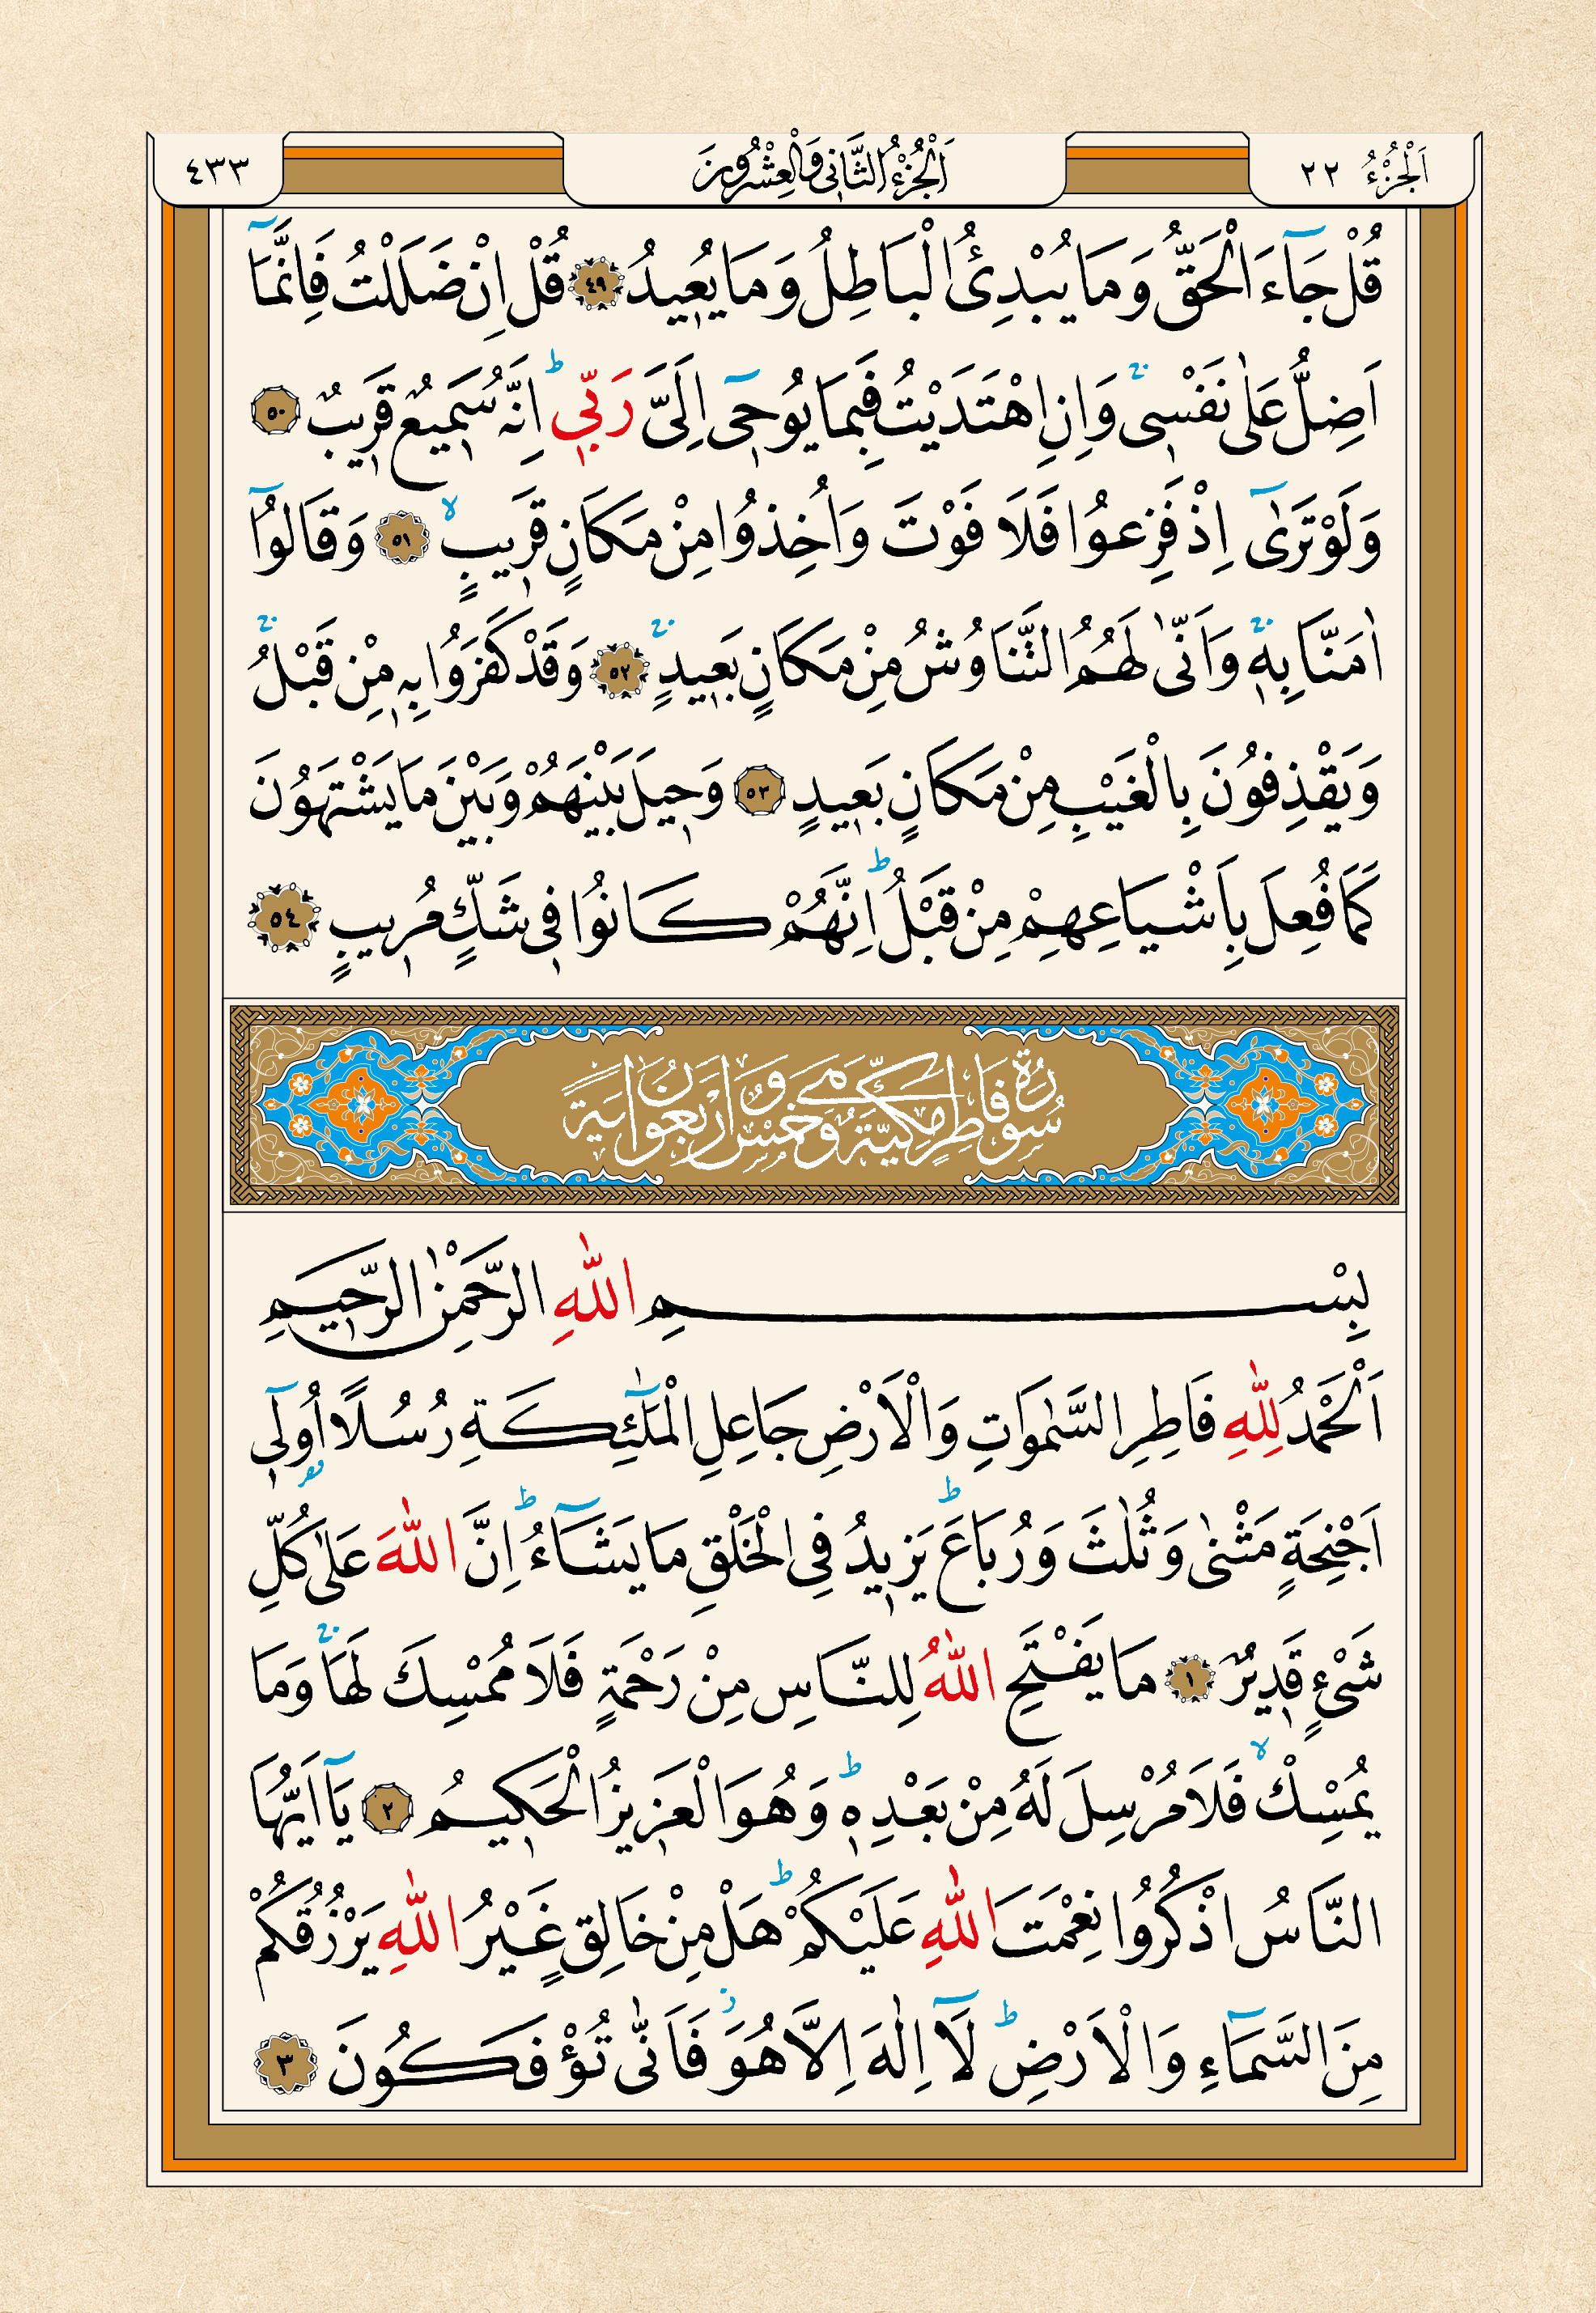 اَلْجُزْءُ ٢٢
اَلْجُزْءُ الثَّانِى وَالْعِشْرُونَ
٤٣٣
قُلْ جَٓاءَ الْحَقُّ وَمَا يُبْدِئُ الْبَاطِلُ وَمَا يُع۪يدُ ٤٩ قُلْ اِنْ ضَلَلْتُ فَاِنَّمَٓا
اَضِلُّ عَلٰى نَفْس۪ىۚ وَاِنِ اهْتَدَيْتُ فَبِمَا يُوح۪ٓى اِلَىَّ رَبّ۪ىۜ اِنَّهُ سَم۪يعٌ قَر۪يبٌ ٥٠
وَلَوْ تَرٰٓى اِذْ فَزِعُوا فَلَا فَوْتَ وَاُخِذُوا مِنْ مَكَانٍ قَر۪يبٍۙ ٥١ وَقَالُٓوا
اٰمَنَّا بِه۪ۚ وَاَنّٰى لَهُمُ التَّنَاوُشُ مِنْ مَكَانٍ بَع۪يدٍۚ ٥٢ وَقَدْ كَفَرُوا بِه۪ مِنْ قَبْلُۚ
وَيَقْذِفُونَ بِالْغَيْبِ مِنْ مَكَانٍ بَع۪يدٍ ٥٣ وَح۪يلَ بَيْنَهُمْ وَبَيْنَ مَا يَشْتَهُونَ
كَمَا فُعِلَ بِاَشْيَاعِهِمْ مِنْ قَبْلُۜ اِنَّهُمْ كَانُوا ف۪ى شَكٍّ مُر۪يبٍ ٥٤
سُورَةُ فَاطِرٍ مَكِّيَّةٌ وَهِىَ خَمْسٌ وَاَرْبَعُونَ اٰيَةً
بِسْمِ اللّٰهِ الرَّحْمٰنِ الرَّح۪يمِ
اَلْحَمْدُ لِلّٰهِ فَاطِرِ السَّمٰوَاتِ وَالْاَرْضِ جَاعِلِ الْمَلٰٓئِكَةِ رُسُلًا اُو۬ل۪ٓى
اَجْنِحَةٍ مَثْنٰى وَثُلٰثَ وَرُبَاعَ يَز۪يدُ فِى الْخَلْقِ مَا يَشَٓاءُۜ اِنَّ اللّٰهَ عَلٰى كُلِّ
شَىْءٍ قَد۪يرٌ ١ مَا يَفْتَحِ اللّٰهُ لِلنَّاسِ مِنْ رَحْمَةٍ فَلَا مُمْسِكَ لَهَاۚ وَمَا
يُمْسِكْۙ فَلَا مُرْسِلَ لَهُ مِنْ بَعْدِه۪ۜ وَهُوَ الْعَز۪يزُ الْحَك۪يمُ ٢ يَٓا اَيُّهَا
النَّاسُ اذْكُرُوا نِعْمَتَ اللّٰهِ عَلَيْكُمْۜ هَلْ مِنْ خَالِقٍ غَيْرُ اللّٰهِ يَرْزُقُكُمْ
مِنَ السَّمَٓاءِ وَالْاَرْضِۜ لَٓا اِلٰهَ اِلَّا هُوَۘ فَاَنّٰى تُؤْفَكُونَ ٣